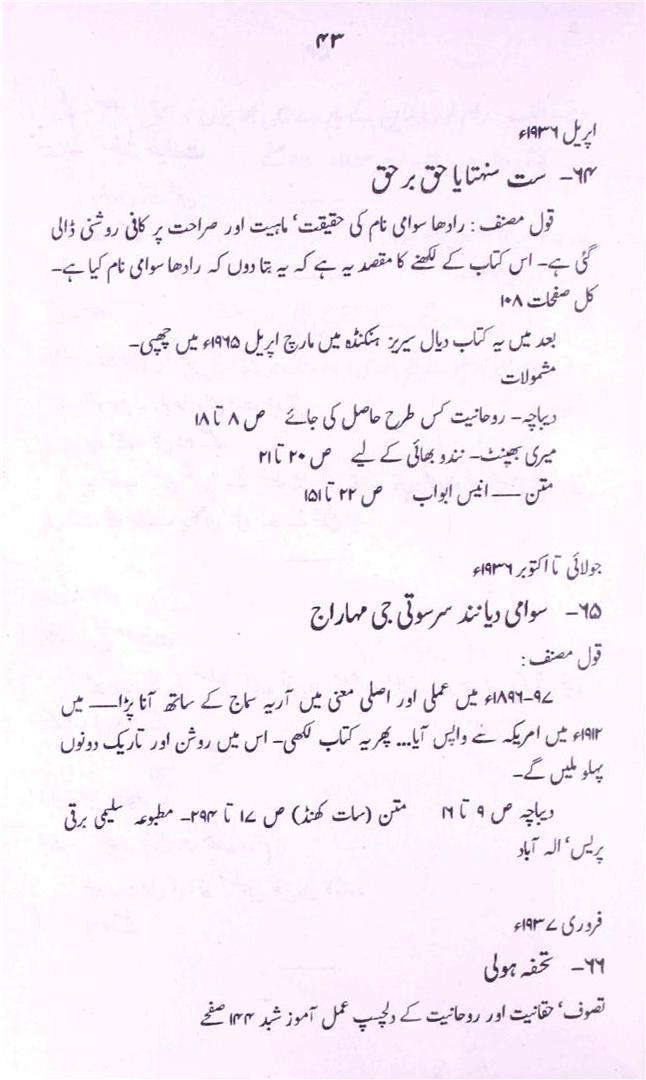 ۴۳
اپریل ۱۹۳۶ء
۶۴- ست سنہتایا حق بر حق
قول مصنف : رادھا سوامی نام کی حقیقت‘ ماہیت اور صراحت پر کافی روشنی ڈالی
گئی ہے- اس کتاب کے لکھنے کا مقصد یہ ہے کہ یہ بتا دوں کہ رادھا سوامی نام کیا ہے-
کل صفحات ۱۰۸
بعد میں یہ کتاب دیال سیریز ہنکنڈہ میں مارچ اپریل ۱۹۶۵ء میں چھپی-
مشمولات
دیباچہ- روحانیت کس طرح حاصل کی جائے ص ۸ تا ۱۸
میری بھینٹ- نندو بھائی کے لیے ص ۲۰ تا ۲۱
متن — انیس ابواب ص ۲۲ تا ۱۵۱
جولائی تا اکتوبر ۱۹۳۶ء
۶۵- سوامی دیانند سرسوتی جی مہاراج
قول مصنف :
۹۷-۱۸۹۶ء میں عملی اور اصلی معنی میں آریہ سماج کے ساتھ آنا پڑا — میں
۱۹۱۲ء میں امریکہ سے واپس آیا... پھر یہ کتاب لکھی- اس میں روشن اور تاریک دونوں
پہلو ملیں گے-
دیباچہ ص ۹ تا ۱۶ متن (سات کھنڈ) ص ۱۷ تا ۲۹۴- مطبوعہ سلیمی برقی
پریس‘ الہ آباد
فروری ۱۹۳۷ء
۶۶- تحفہ ہولی
تصوف‘ حقانیت اور روحانیت کے دلچسپ عمل آموز شبد ۱۴۴ صفحے